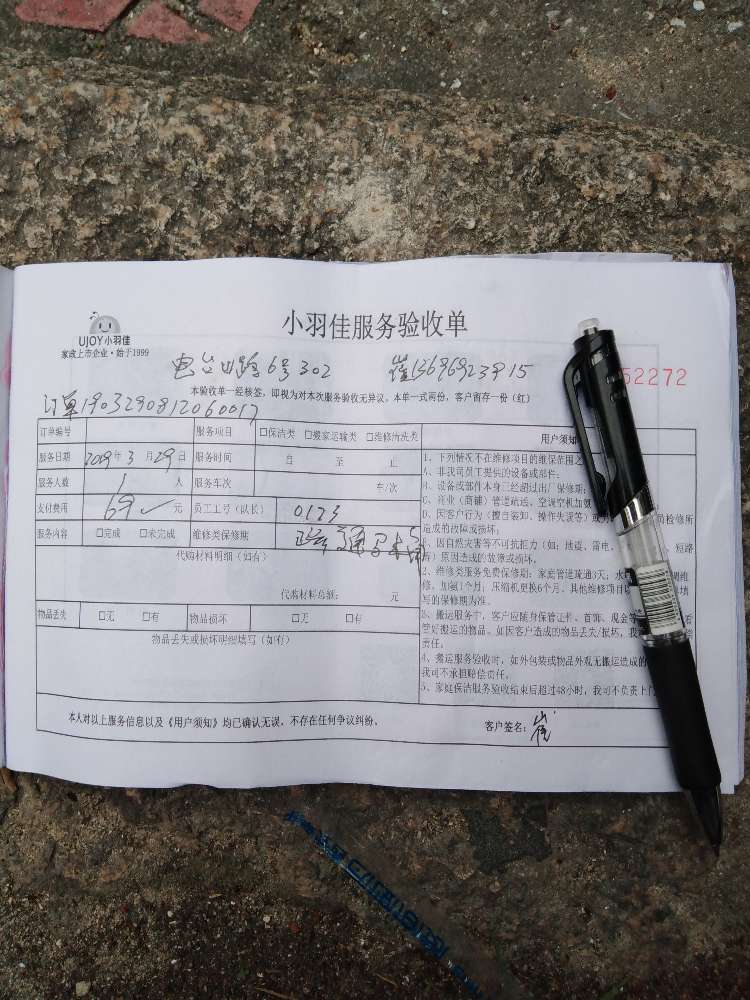 小羽佳服务验收单
UJOY小羽佳
家政上市企业·始于1999
电台山路6号302 崔13696923915
52272
本验收单一经核签，即视为对本次服务验收无异议。本单一式两份，客户留存一份（红）
订单1903290812060017
订单编号 服务项目 □保洁类 □搬家运输类 □维修清洗类 用户须知
服务日期 2019年3月29日 服务时间 自 至 止
服务人数 1 人 服务车次 车/次
支付费用 69 元 员工工号（队长） 0123
服务内容 □完成 □未完成 维修类保修期
代购材料明细（如有）
代购材料总额： 元
物品丢失 □无 □有 物品损坏 □无 □有
物品丢失或损坏明细填写（如有）
1、下列情况不在维修项目的维保范围之
A、非我司员工提供的设备或部件；
B、设备或部件本身已经超过出厂保修期；
C、商业（商铺）管道疏通、空调空机加氨
D、因客户行为（擅自装卸、操作失误等）或 员检修所
造成的故障或损坏；
因自然灾害等不可抗拒力（如：地震、雷电、 短路
）原因造成的故障或损坏。
2、维修类服务免费保修期：家庭管道疏通3天；水 调维
修、加氨1个月；压缩机更换6个月。其他维修项目以 填
写的保修期为准。
3、搬运服务中，客户应随身保管证件、首饰、现金等 看
管好搬运的物品。如因客户造成的物品丢失/损坏，我
责任。
4、搬运服务验收时，如外包装或物品外观无搬运造成的
我司不承担赔偿责任。
5、家庭保洁服务验收结束后超过48小时，我司不负责上门
本人对以上服务信息以及《用户须知》均已确认无误，不存在任何争议纠纷。 客户签名：崔